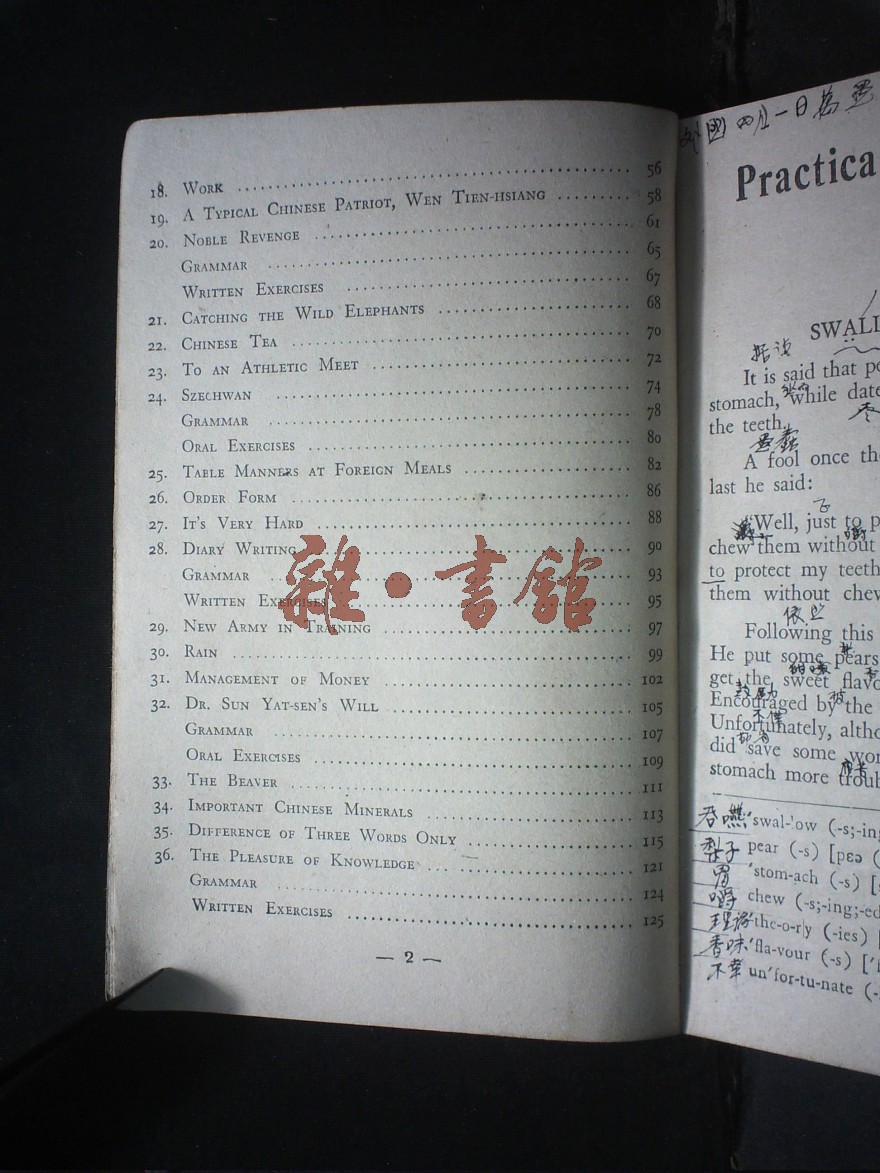 18. WORK 56
19. A TYPICAL CHINESE PATRIOT, WEN TIEN-HSIANG 58
20. NOBLE REVENGE 61
GRAMMAR 65
WRITTEN EXERCISES 67
21. CATCHING THE WILD ELEPHANTS 68
22. CHINESE TEA 70
23. TO AN ATHLETIC MEET 72
24. SZECHWAN 74
GRAMMAR 78
ORAL EXERCISES 80
25. TABLE MANNERS AT FOREIGN MEALS 82
26. ORDER FORM 86
27. IT'S VERY HARD 88
28. DIARY WRITING 90
GRAMMAR 93
WRITTEN EXERCISES 95
29. NEW ARMY IN TRAINING 97
30. RAIN 99
31. MANAGEMENT OF MONEY 102
32. DR. SUN YAT-SEN'S WILL 105
GRAMMAR 107
ORAL EXERCISES 109
33. THE BEAVER 111
34. IMPORTANT CHINESE MINERALS 113
35. DIFFERENCE OF THREE WORDS ONLY 115
36. THE PLEASURE OF KNOWLEDGE 121
GRAMMAR 124
WRITTEN EXERCISES 125
— 2 —
雜·書館
四月一日
Practica
SWALL
据说
It is said that
stomach, while date
the teeth.
A fool once
last he said:
"Well, just to
chew them without
to protect my teeth
them without chew
Following this
He put some pears
get the sweet flavo
鼓励
Encouraged by the
不幸
Unfortunately, altho
did save some
stomach more troub
吞嚥 'swal-'ow (-s;-ing
梨子 pear (-s) [pɛə
胃 'stom-ach (-s)
嚼 chew (-s;-ing;-ed
理論 'the-o-ry (-ies)
香味 'fla-vour (-s)
不幸 un'for-tu-nate